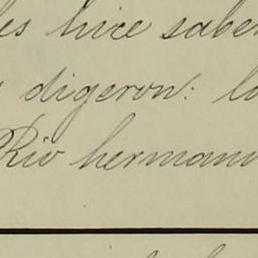 les hice saber
digeron: lo
Rio herman